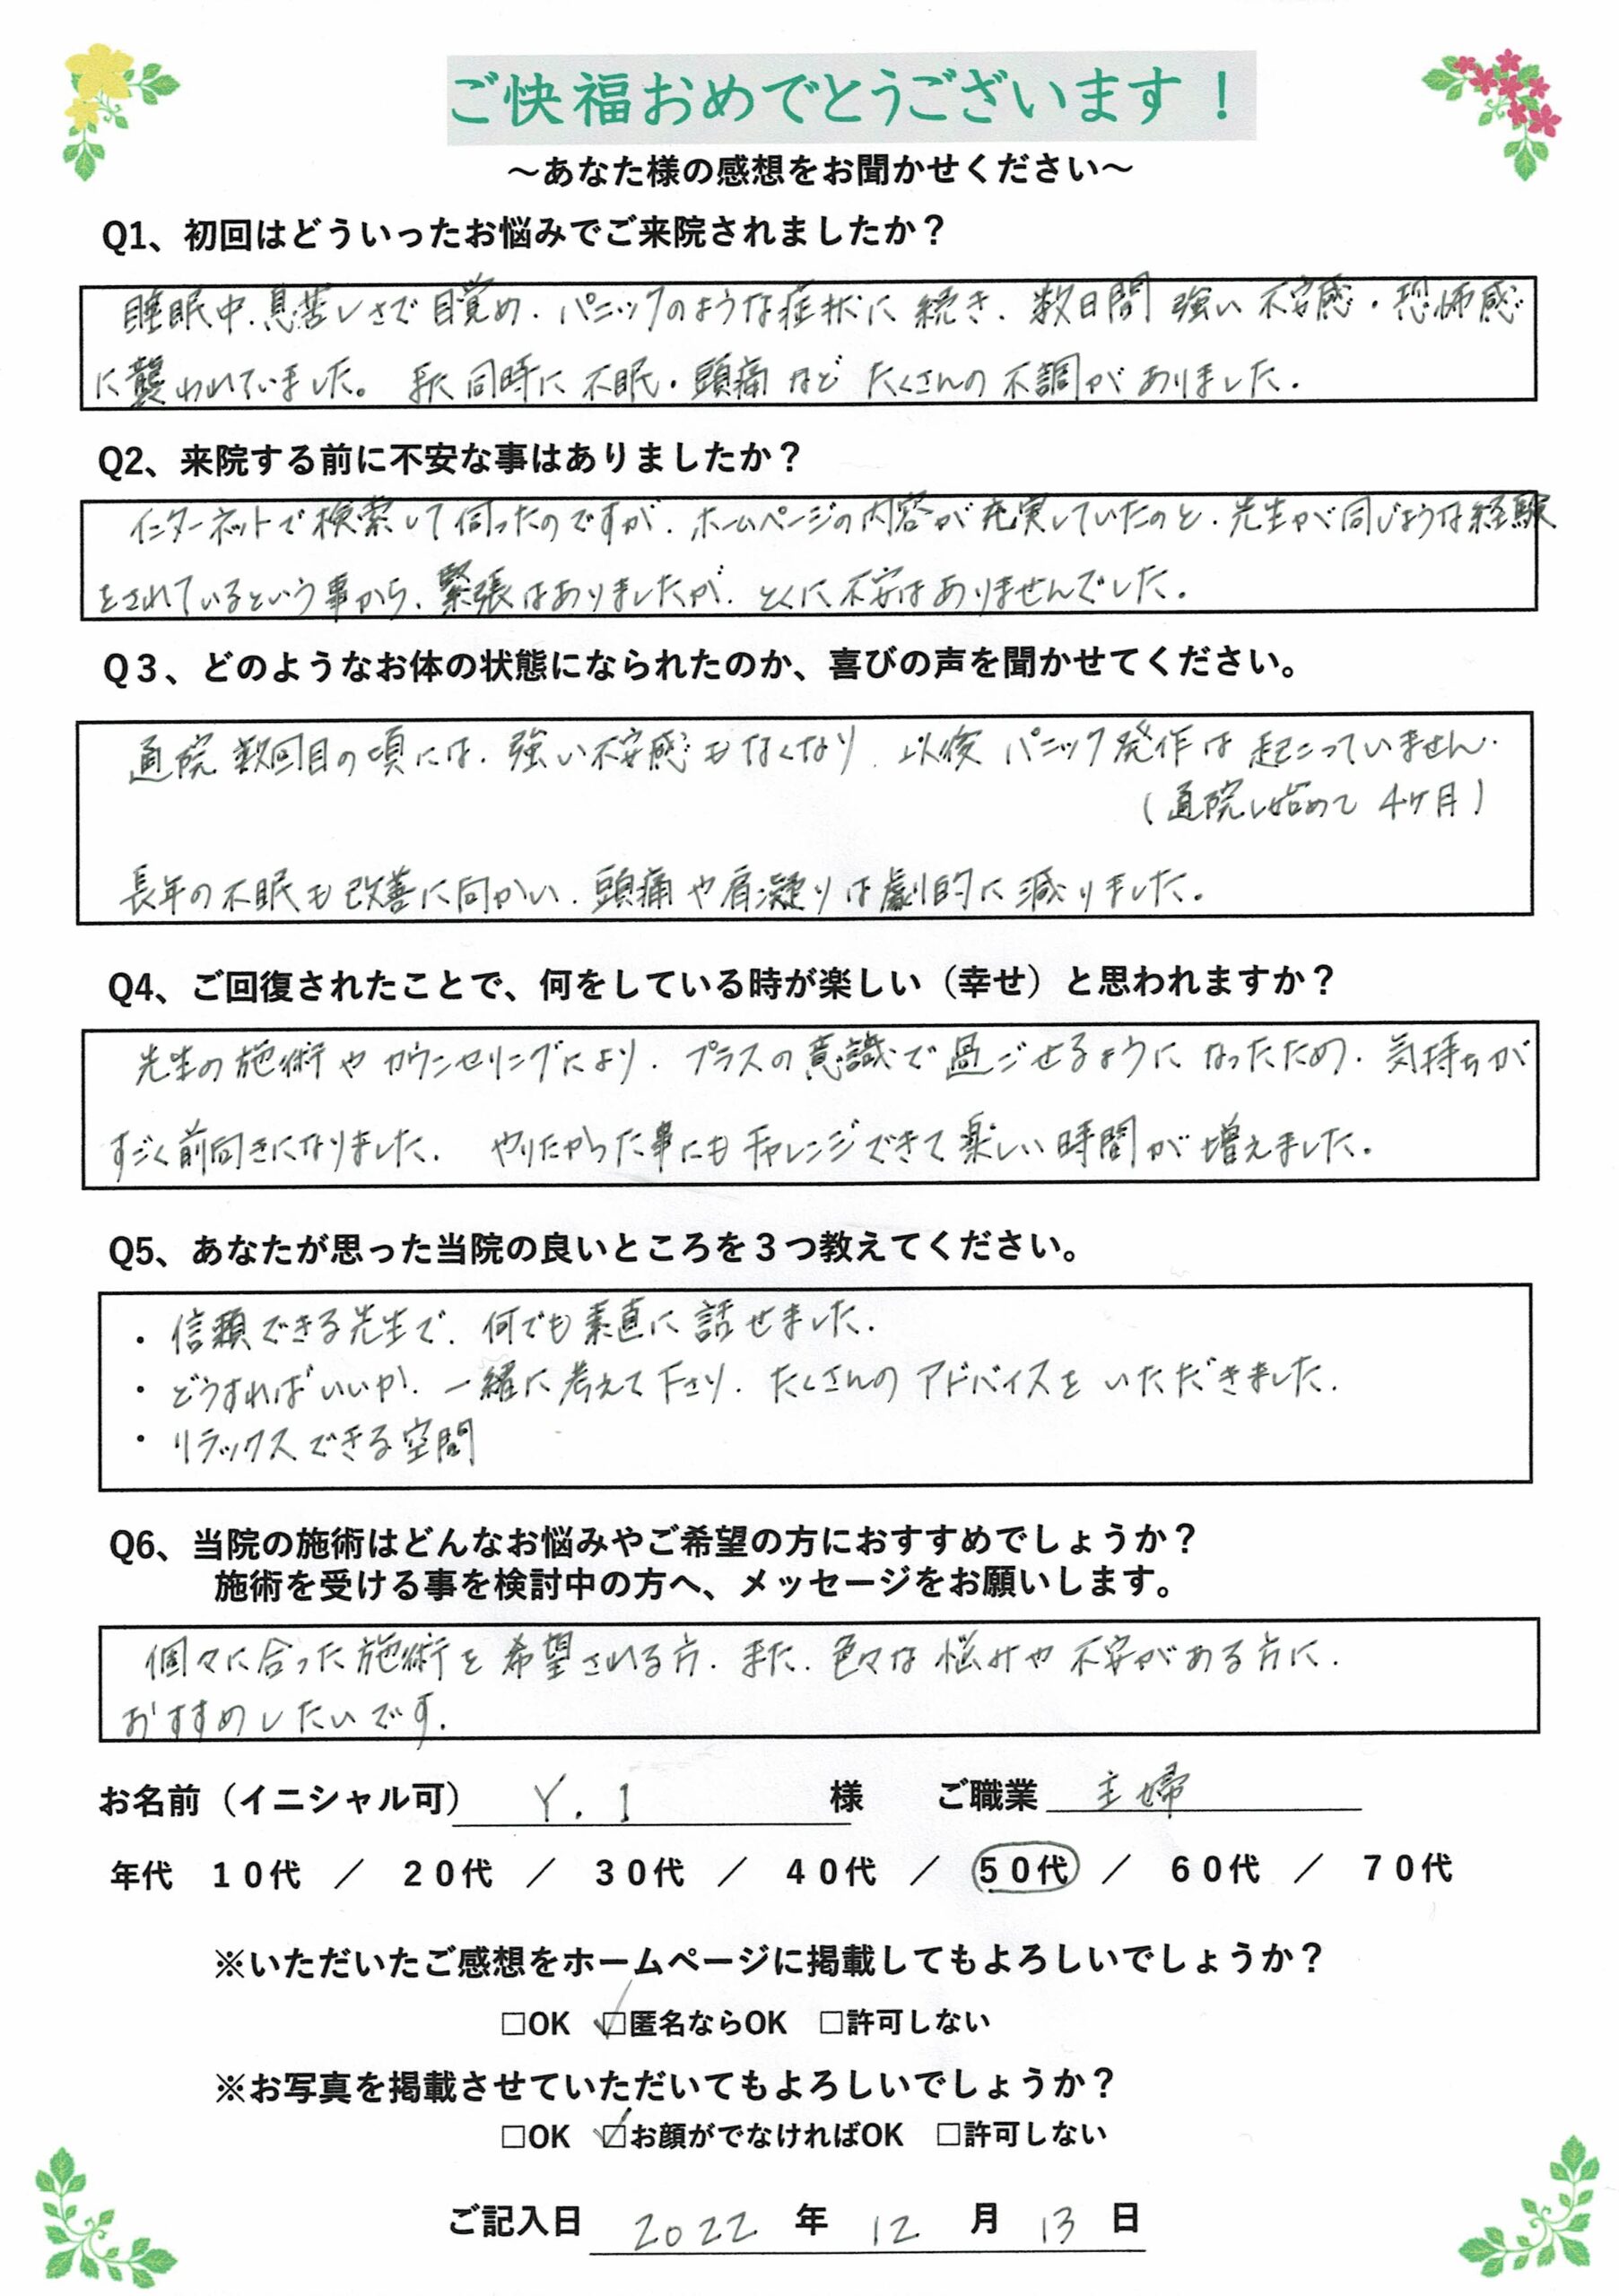 ご快福おめでとうございます！
～あなた様の感想をお聞かせください～
Q1、初回はどういったお悩みでご来院されましたか？
睡眠中、息苦しさで目覚め、パニックのような症状に続き、数日間 強い不安感・恐怖感
に襲われていました。また同時に不眠・頭痛など たくさんの不調がありました。
Q2、来院する前に不安な事はありましたか？
インターネットで検索して伺ったのですが、ホームページの内容が充実していたのと、先生がが同じような経験
をされているという事から、緊張はありましたが、とくに不安はありませんでした。
Q３、どのようなお体の状態になられたのか、喜びの声を聞かせてください。
通院 数回目の頃には、強い不安感もなくなり、以後 パニック発作は起こっていません。
（通院し始めて 4ヶ月）
長年の不眠も改善に向かい、頭痛や肩凝りは劇的に減りました。
Q4、ご回復されたことで、何をしている時が楽しい（幸せ）と思われますか？
先生の施術やカウンセリングにより、プラスの意識で過ごせるようになったため、気持ちが
すごく前向きになりました。 やりたかった事にもチャレンジできて楽しい時間が増えました。
Q5、あなたが思った当院の良いところを３つ教えてください。
・信頼できる先生で、何でも素直に話せました。
・どうすればいいか、一緒に考えて下さり、たくさんのアドバイスをいただきました。
・リラックスできる空間
Q6、当院の施術はどんなお悩みやご希望の方におすすめでしょうか？
施術を受ける事を検討中の方へ、メッセージをお願いします。
個々に合った施術を希望される方、また、色々な悩みや不安がある方に、
おすすめしたいです。
お名前（イニシャル可） Y. I 様 ご職業 主婦
年代 １０代 ／ ２０代 ／ ３０代 ／ ４０代 ／ ５０代 ／ ６０代 ／ ７０代
※いただいたご感想をホームページに掲載してもよろしいでしょうか？
□OK ☑匿名ならOK □許可しない
※お写真を掲載させていただいてもよろしいでしょうか？
□OK ☑お顔がでなければOK □許可しない
ご記入日 2022 年 12 月 13 日